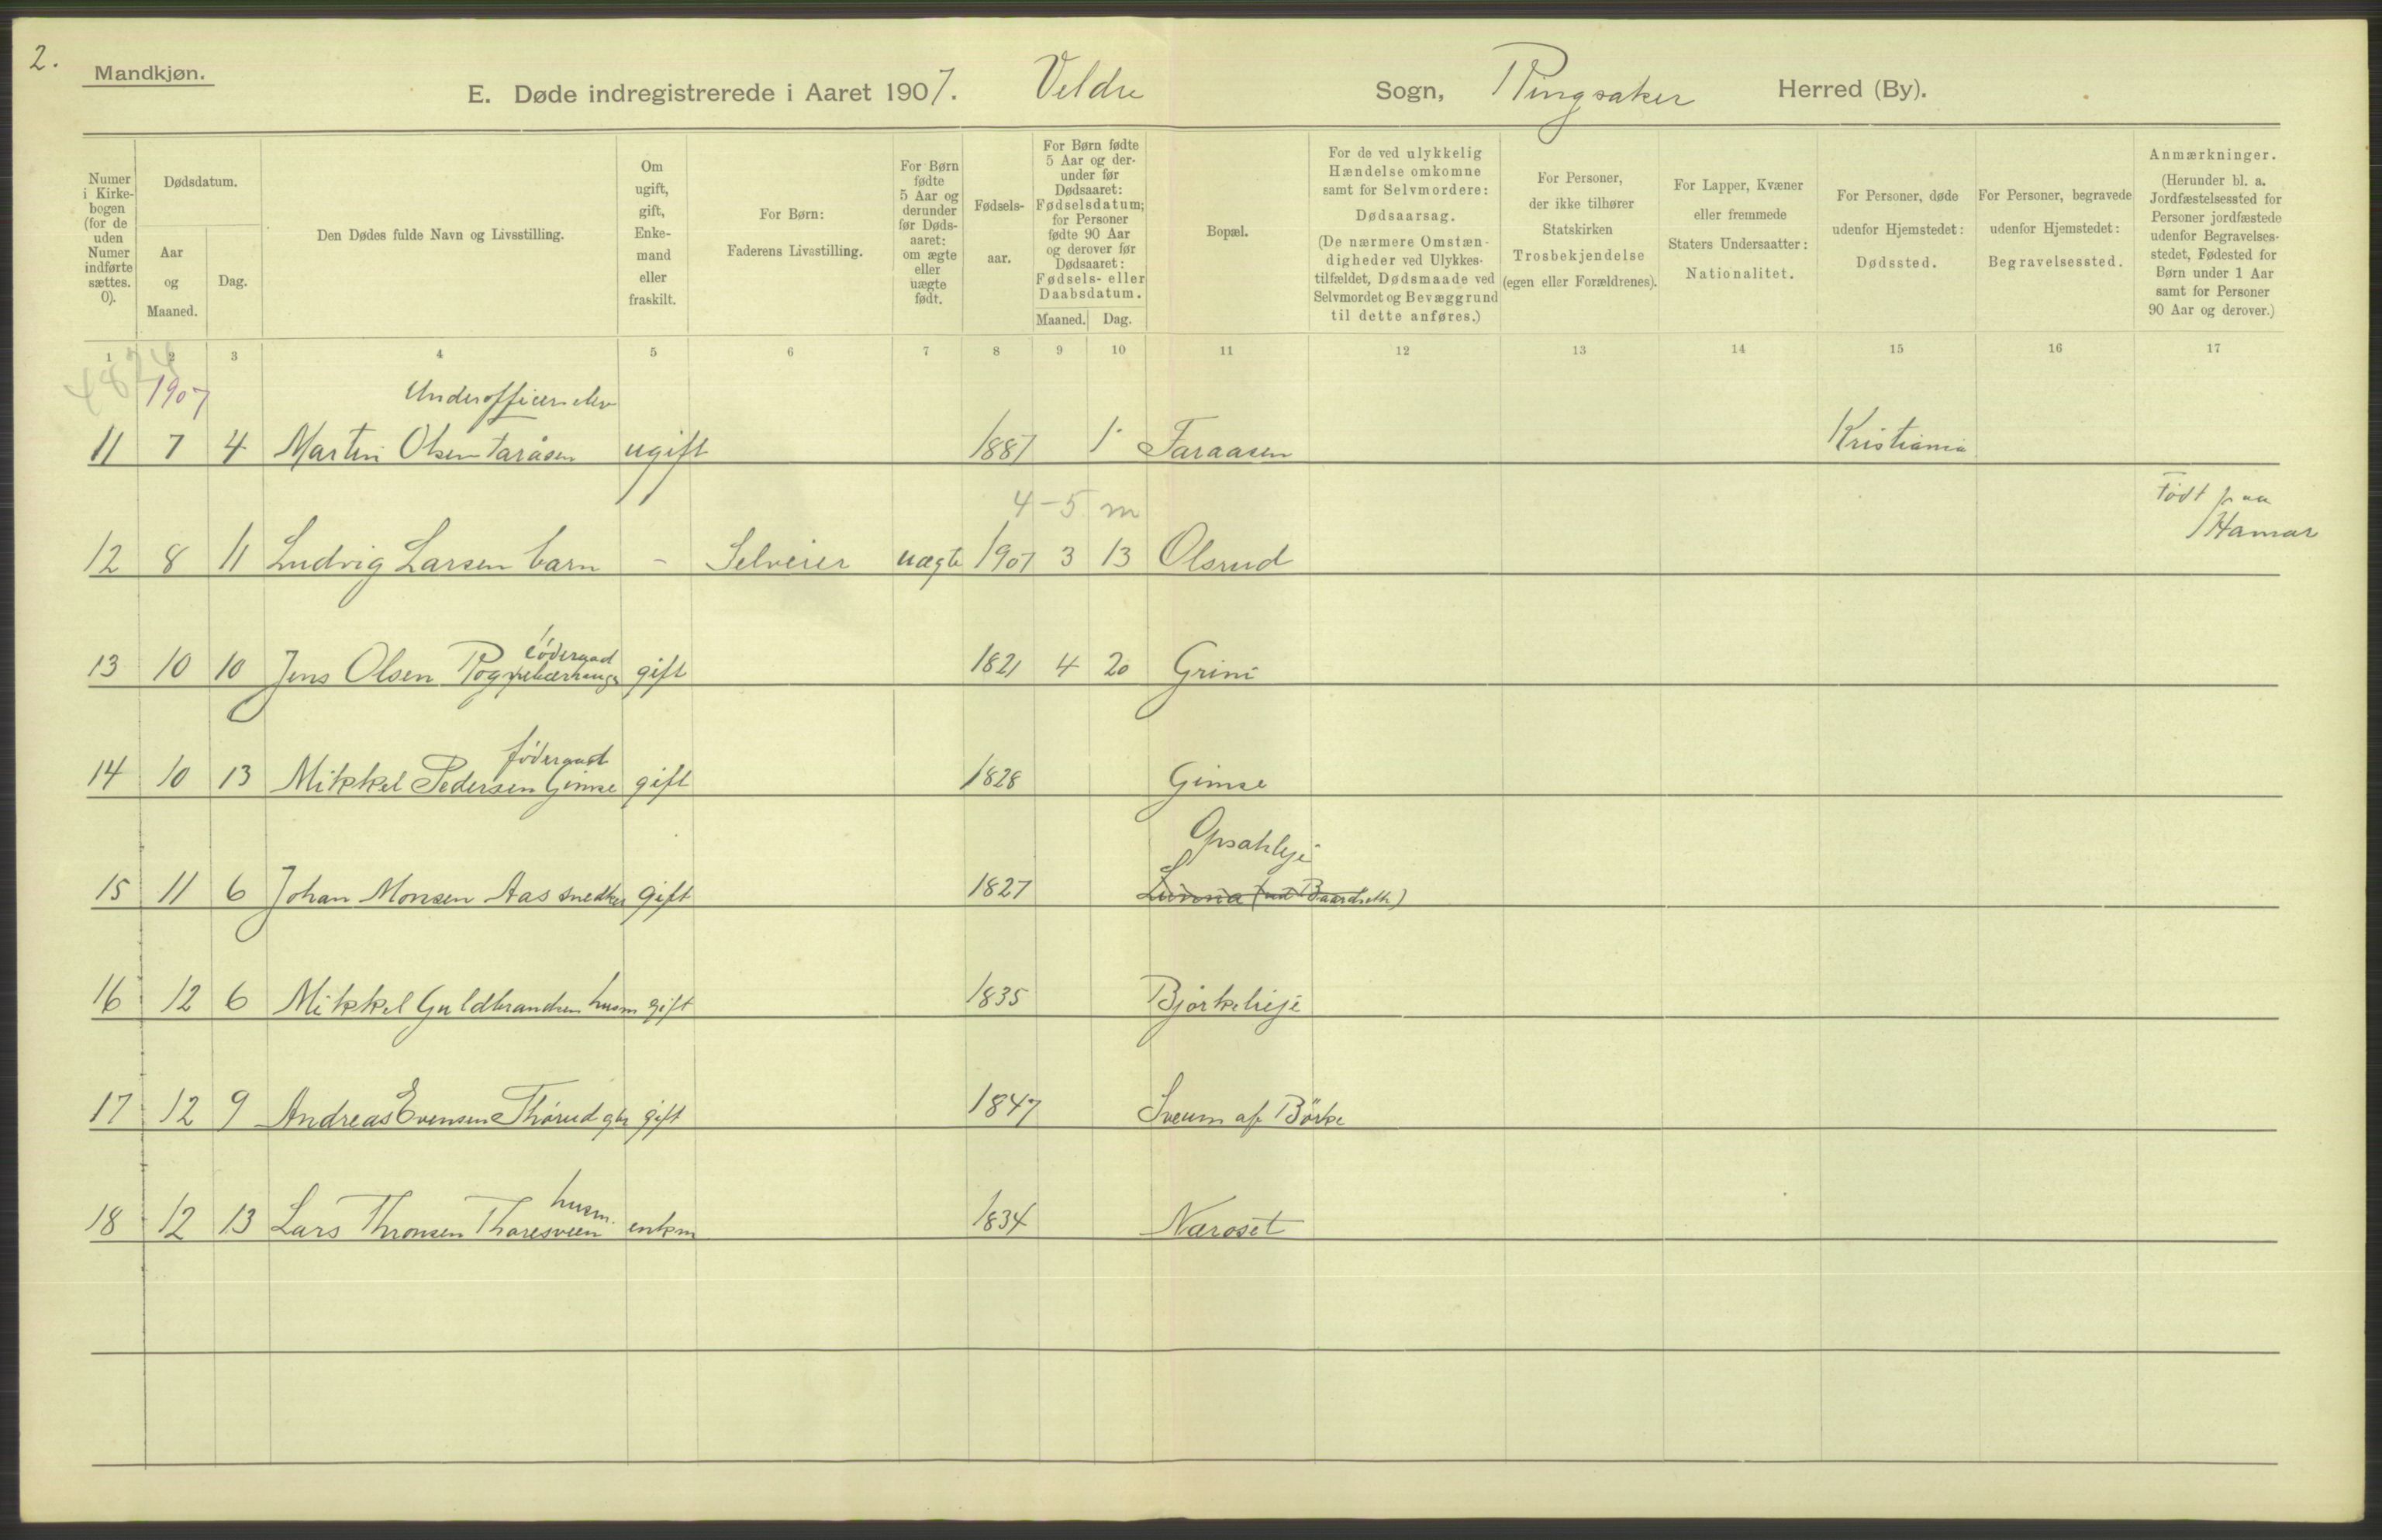 2.
Mandkjøn.
E. Døde indregistrerede i Aaret 1907. Veldre Sogn, Ringsaker Herred (By).
Numer i Kirke-bogen (for de uden Numer indførte sættes. 0).
Dødsdatum.
Aar og Maaned.
Dag.
Den Dødes fulde Navn og Livsstilling.
Om ugift, gift, Enke-mand eller fraskilt.
For Børn:
Faderens Livsstilling.
For Børn fødte 5 Aar og derunder før Døds-aaret: om ægte eller uægte født.
Fødsels-aar.
For Børn fødte 5 Aar og der-under før Dødsaaret: Fødselsdatum; for Personer fødte 90 Aar og derover før Dødsaaret: Fødsels- eller Daabsdatum.
Maaned. Dag.
Bopæl.
For de ved ulykkelig Hændelse omkomne samt for Selvmordere: Dødsaarsag.
(De nærmere Omstæn-digheder ved Ulykkes-tilfældet, Dødsmaade ved Selvmordet og Bevæggrund til dette anføres.)
For Personer, der ikke tilhører Statskirken Trosbekjendelse (egen eller Forældrenes).
For Lapper, Kvæner eller fremmede Staters Undersaatter: Nationalitet.
For Personer, døde udenfor Hjemstedet: Dødssted.
For Personer, begravede udenfor Hjemstedet: Begravelsessted.
Anmærkninger.
(Herunder bl. a. Jordfæstelsessted for Personer jordfæstede udenfor Begravelses-stedet, Fødested for Børn under 1 Aar samt for Personer 90 Aar og derover.)
1 2 3 4 5 6 7 8 9 10 11 12 13 14 15 16 17
1907
Underofficerselev
11 7 4 Martin Olsen Taråsen ugift 1887 1 Taraasen Kristiania
4-5 m
Født paa
Hamar
12 8 11 Ludvig Larsen barn - Selveier uægte 1907 3 13 Olsrud
føderaad
13 10 10 Jens Olsen gift 1821 4 20 Grini
føderaad
14 10 13 Mikkel Pedersen Gimse gift 1828 Gimse
Opsahleje
15 11 6 Johan Monsen Aas snedker gift 1827
16 12 6 Mikkel Guldbrandsen husm gift 1835 Bjørkelieje
17 12 9 Andreas Evensen Thorud gbr gift 1847 Sveum af Börke
husm.
18 12 13 Lars Thronsen Thoresveen enkm 1834 Næroset